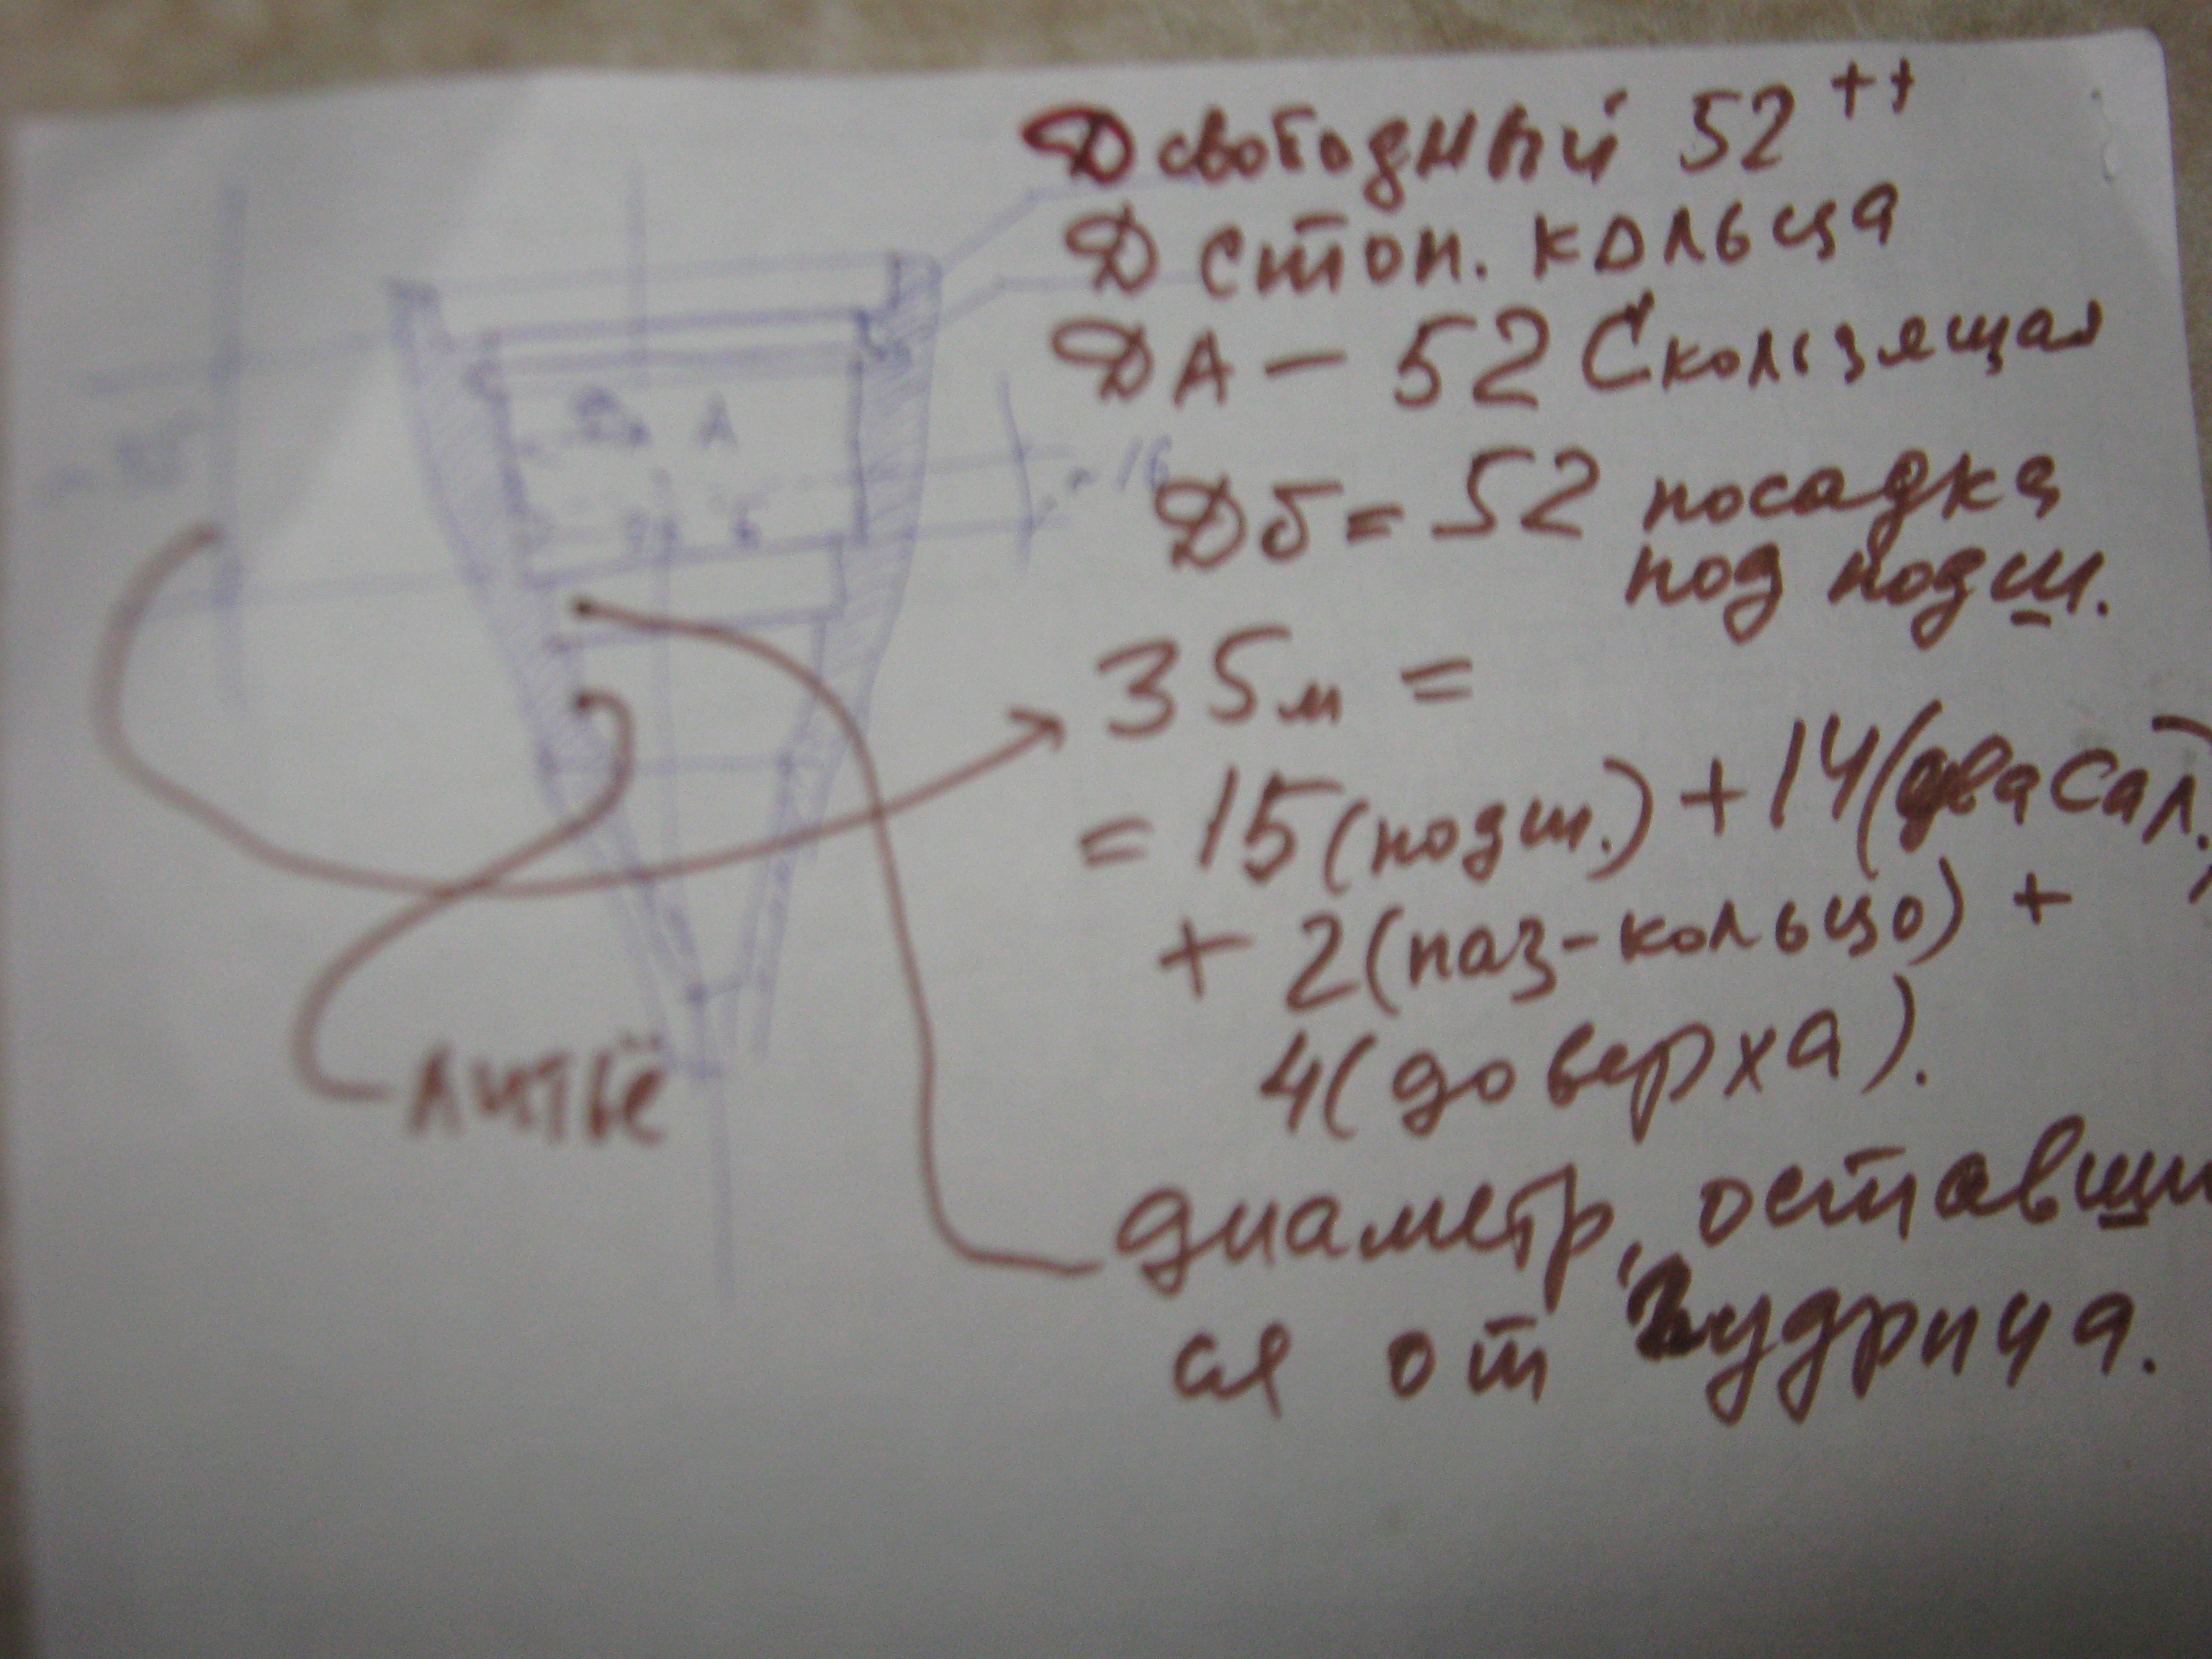 Д свободный 52 ++
Д стоп. кольца
ДА - 52 Скользящая
Дб = 52 посадка
под подш.
А
Б
~ 16
35м =
= 15 (подш.) + 14 (два сал.)
+ 2 (паз-кольцо) +
4 (до верха).
литьё
диаметр, оставши
ся от